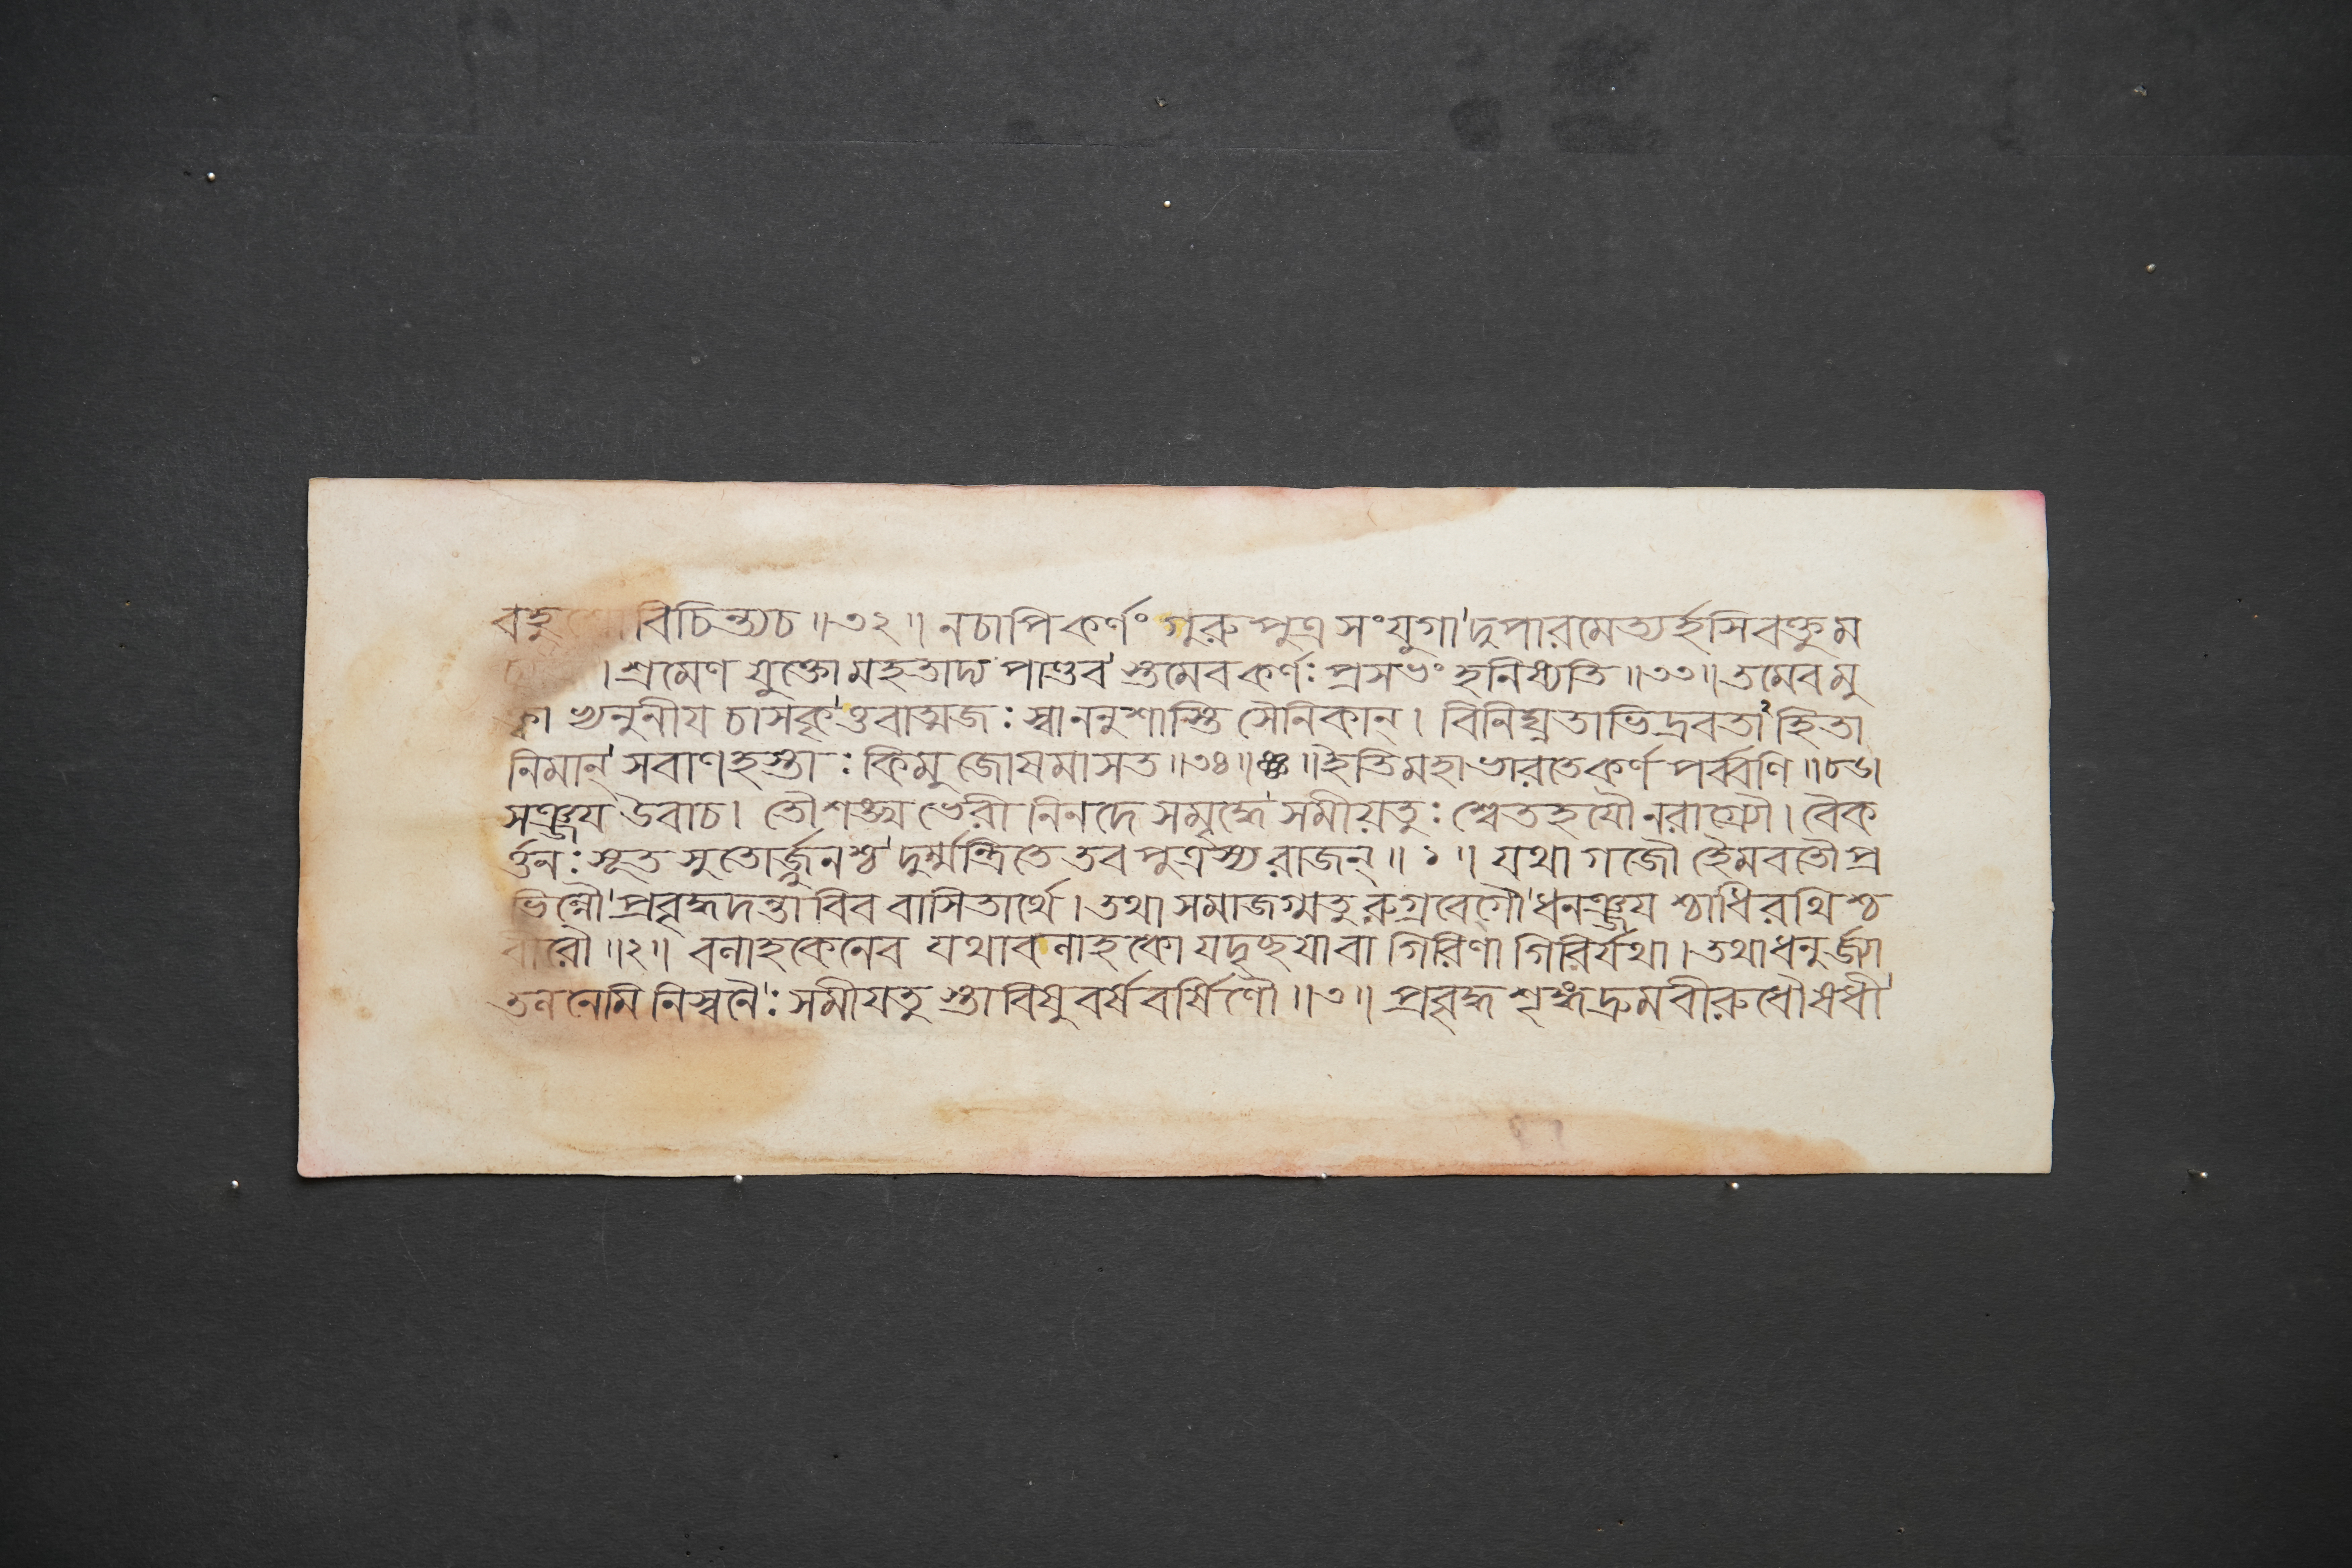 বহুশো বিচিন্ত্যচ॥৩২॥ নচাপিকর্ণং গুরুপুত্র সংযুগাদুপারমেত্যর্হসিবক্তুম
। শ্রমেণ যুক্তো মহতাদ্য পাণ্ডব স্তমেবকর্ণঃ প্রসভং হনিষ্যতি॥৩৩॥ তমেবমু
ক্তা ভ্যনুনীয চাসকৃত্তবাত্মজঃ স্বাননুশাস্তি সৈনিকান্। বিনিঘ্নতাভিদ্রবতা হিতা
নিমান্ সবাণহস্তাঃ কিমু জোষমাসত॥৩৪॥ঞ্চ॥ইতি মহাভারতেকর্ণ পর্ব্বণি॥৮৬।
সঞ্জয উবাচ। তৌশঙ্খ ভেরী নিনদে সমৃদ্ধে সমীয়তুঃ শ্বেতহযৌ নরাগ্র্যৌ। বৈক
র্ত্তনঃ সূত সুতোর্জ্জুনশ্চ দুর্ম্মন্ত্রিতে তব পুত্রস্য রাজন্॥১॥ যথা গজৌ হৈমবতৌ প্র
ভিন্নৌ প্রবৃদ্ধদন্তা বিব বাসিতার্থে। তথা সমাজগ্মতু রুগ্রবেগৌ ধনঞ্জয শ্চাধিরথিশ্চ
বীরৌ॥২॥ বলাহকেনেব যথাবলাহকো যদৃচ্ছযাবা গিরিণা গিরির্যথা। তথাধনুর্জ্যা
তলনেমি নিস্বনৈঃ সমীযতু স্তাবিষুবর্ষ বর্ষিণৌ॥৩॥ প্রবৃদ্ধ শৃঙ্গদ্রুমবীরুধৌষধী